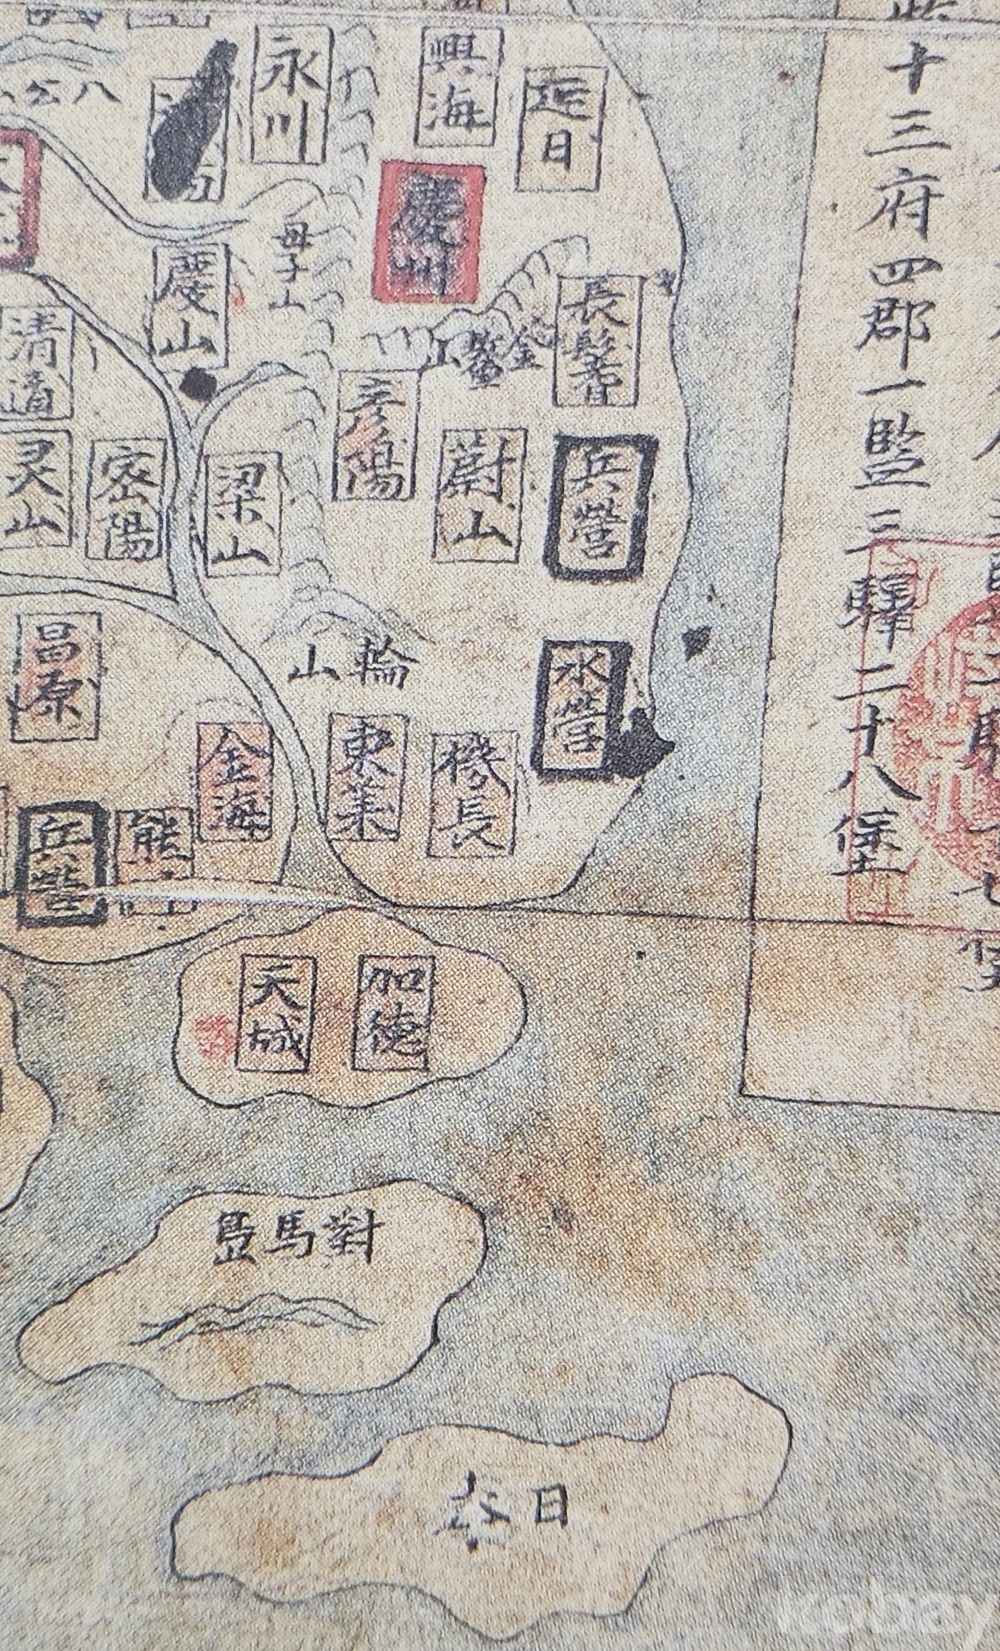 十三府四郡一監三驛二十八堡
興海
迎日
永川
八公
慶州
母子山
慶山
長鬐
金鰲山
清道
彦陽
蔚山
兵營
梁山
密陽
灵山
水營
輪山
昌原
機長
東萊
金海
熊
兵營
加德
天城
對馬島
日本
kobay